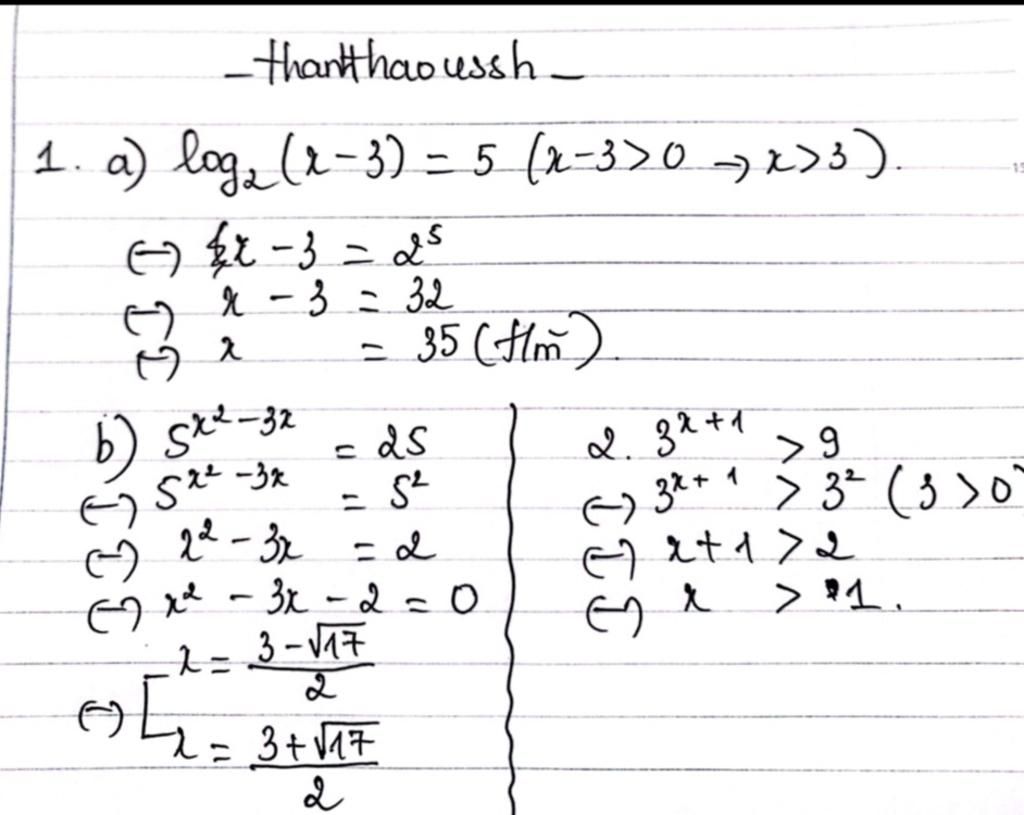 _thanhthaoussh_
1. a) log₂(x-3) = 5 (x-3>0 → x>3).
(↔) x - 3 = 2⁵
(↔) x - 3 = 32
(↔) x = 35 (t/m)
b) 5^(x²-3x) = 25
(↔) 5^(x²-3x) = 5²
(↔) x² - 3x = 2
(↔) x² - 3x - 2 = 0
(↔) [ x = (3-√17)/2
x = (3+√17)/2
2. 3^(x+1) > 9
(↔) 3^(x+1) > 3² (3>0)
(↔) x+1 > 2
(↔) x > 1.